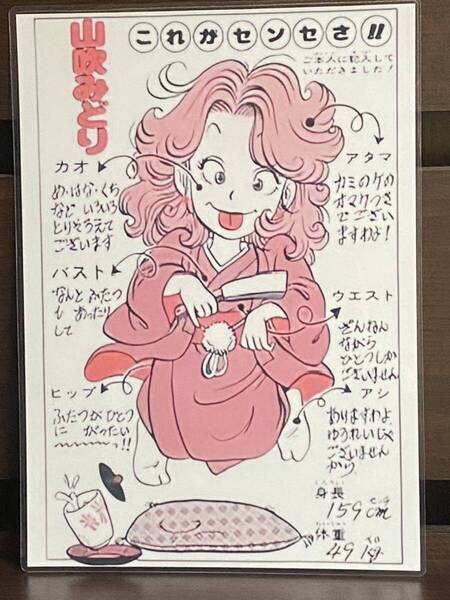 これがセンセさ!!
ご本人に記入して
いただきました！
山吹みどり
カオ
め・はな・くち
など いろいろ
とりそろえて
ございます
アタマ
カミのゲの
オマケつき
でござい
ますわよ！
バスト
なんと ふたつ
も あったり
して
ウエスト
ざんねん
ながら
ひとつしか
ございません
ヒップ
ふたつがひとつ
に がったい
〜〜〜〜っ!!
アシ
ありますわよ
ゆうれいじゃ
ございません
から
しんちょう
身長
センチ
159cm
たいじゅう
体重
キロ
49kg